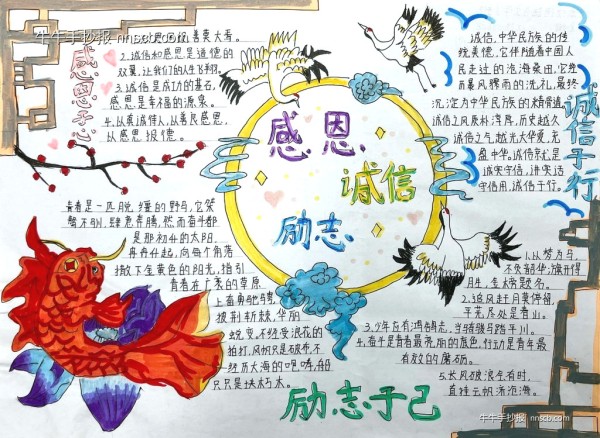 牛牛手抄报 nnscb.com
善莫大焉。
2.诚信和感恩是道德的
双翼,让我们的人生飞翔。
3.诚信是成功的基石,
感恩是幸福的源泉。
4.以真诚待人,以善良感恩,
以感恩报德。
感恩于心
感恩
诚信
励志
诚信,中华民族的传
统美德,它伴随着中国人
民走过的沧海桑田,它
雨暴风骤雨的洗礼,最终
沉淀为中华民族的精骨道,
诚信之风质朴淳厚,历史越久
诚信之气越光大华夏,充
盈中华。诚信守尤是
诚实守信,讲实话
守信用,诚信于行。
诚信于行
青春是一匹脱缰的野马,它桀
骜不驯,肆意奔腾,然而奋斗都
是那初升的太阳,
冉冉升起,向每个角落
撒下金黄色的阳光,指引
青春在广袤的草原
上奋勇驰骋,
披荆斩棘,华丽
蜕变,不经受浪花的
拍打,风帆只是破布,不
经历大海的咆哮,船
只只是块朽木。
1.以梦为马,
不负韶华,旗开得
胜,金榜题名。
2.追风赶月莫停留,
平芜尽处是春山。
3.少年自有鸿鹄志,当骑骏马踏平川。
4.奋斗是青春最亮丽的底色,行动是青年最
有效的磨砺。
5.长风破浪会有时,
直挂云帆济沧海。
励志于己
牛牛手抄报 nnscb.com